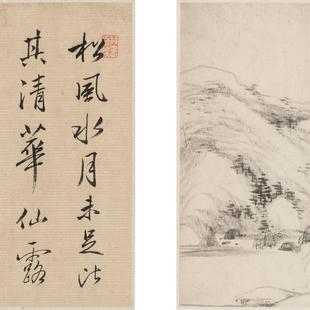 松風水月未足比
其清華仙露